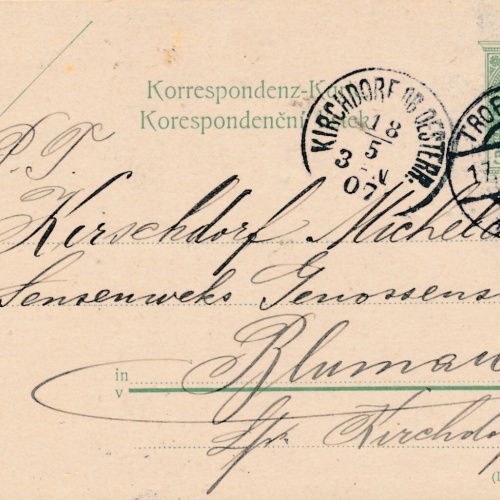 Korrespondenz-K
Korespondenční lístek
KIRCHDORF OB. OESTERR.
18
5
3 N
07
TRO
17
P. T.
Kirschdorf Micheld
Sensenweks Genossens
in Blumau
v
Kirchdo